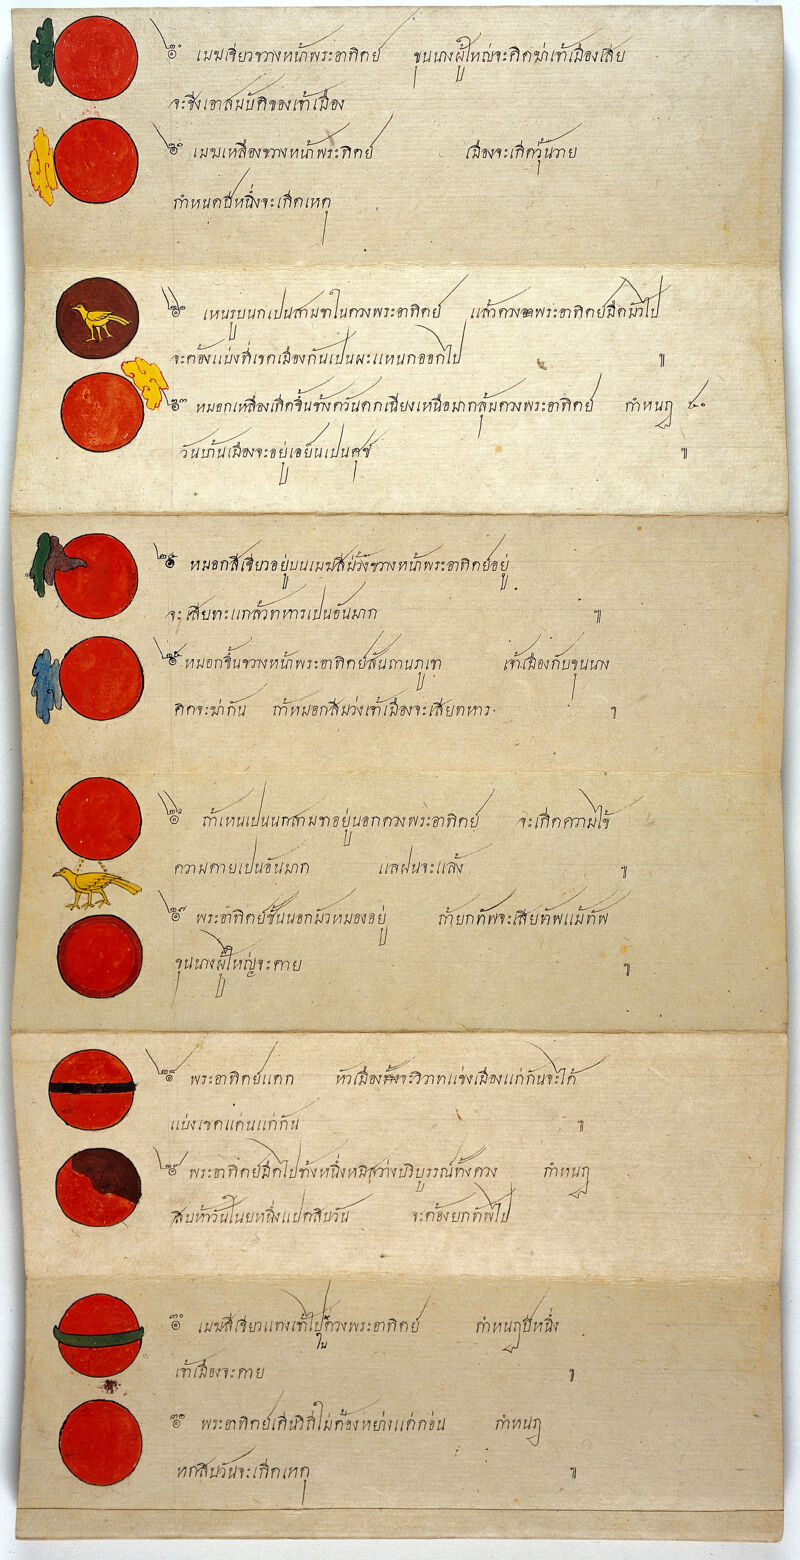 ๒๐ เมฆเขียวขวางหน้าพระอาทิตย์ ขุนนางผู้ใหญ่จะคิดฆ่าเจ้าเมืองเสีย
จะชิงเอาสมบัติของเจ้าเมือง
๒๑ เมฆเหลืองขวางหน้าพระทิตย์ เมืองจะเกิดวุ้นวาย
กำหนดปีหนึ่งจะเกิดเหตุ
๒๒ เหนรูบนกเปนสามขาในดวงพระอาทิตย์ แล้วดวงพระอาทิตย์มืดมัวไป
จะต้องแบ่งที่เขตเมืองกันเปนผะแหนกออกไป ๚
๒๓ หมอกเหลืองเกิดขึ้นข้างตวันตกเฉียงเหนือมากลุ้มดวงพระอาทิตย์ กำหนฎ ๔๐
วันบ้านเมืองจะอยู่เอย็นเปนศุข ๚
๒๔ หมอกสีเขียวอยู่บนเมฆสีม่วงขวางหน้าพระอาทิตย์อยู่
จะเสียทะแกล้วทหารเปนอันมาก ๚
๒๕ หมอกขึ้นขวางหน้าพระอาทิตย์สันถานภูเขา เจ้าเมืองกับขุนนาง
คิดจะฆ่ากัน ถ้าหมอกสีม่วงเจ้าเมืองจะเสียทหาร ๚
๒๖ ถ้าเหนเปนนกสามขาอยู่นอกดวงพระอาทิตย์ จะเกิดความไข้
ความตายเปนอันมาก แลฝนจะแล้ง ๚
๒๗ พระอาทิตย์ชั้นนอกมัวหมองอยู่ ถ้ายกทัพจะเสียทัพแม้ทัพ
ขุนนางผู้ใหญ่จะตาย ๚
๒๘ พระอาทิตย์แตก หัวเมืองทั้งจะวิวาทแข่งเมืองแก่กันจะได้
แบ่งเขตแดนแก่กัน ๚
๒๙ พระอาทิตย์มืดไปข้างหนึ่งหมิสว่างบริบูรรณ์ทั้งดวง กำหนฎ
สิบห้าวันในยหนึ่งแปดสิบวัน จะต้องยกทัพไป
๓๐ เมฆสีเขียวแทงเข้าไปในดวงพระอาทิตย์ กำหนฎปีหนึ่ง
เจ้าเมืองจะตาย ๚
๓๑ พระอาทิตย์เดินวิถีไม่ต้องหย่างแต่ก่อน กำหนฎ
หกสิบวันจะเกิดเหตุ ๚